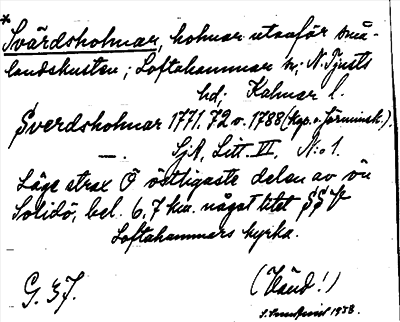 *
Svärdsholmar, holmar utanför små-
landskusten; Loftahammar sn; N. Tjusts
hd; Kalmar l.
Sverdsholmar 1771.72 o. 1788 (kop. o. förminsk.).
— SjA, Litt. II, N:o 1.
Läge strax Ö östligaste delen av ön
Solidö, bel. 6,7 km. något litet SSV
Loftahammars kyrka.
G. 37. (Vänd!)
1958.